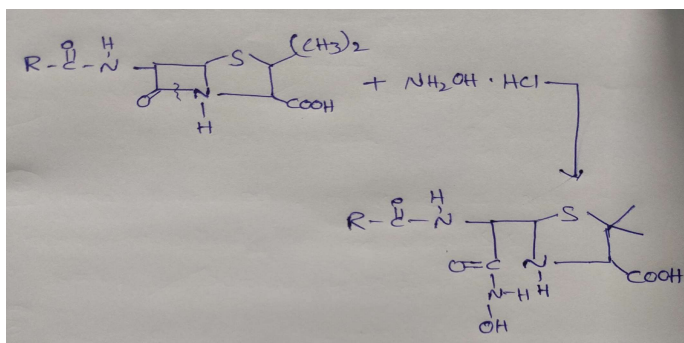 O H
R-C-N S (CH3)2
O N COOH + NH2OH · HCl
H
O H
R-C-N S
O=C N COOH
N-H H
OH